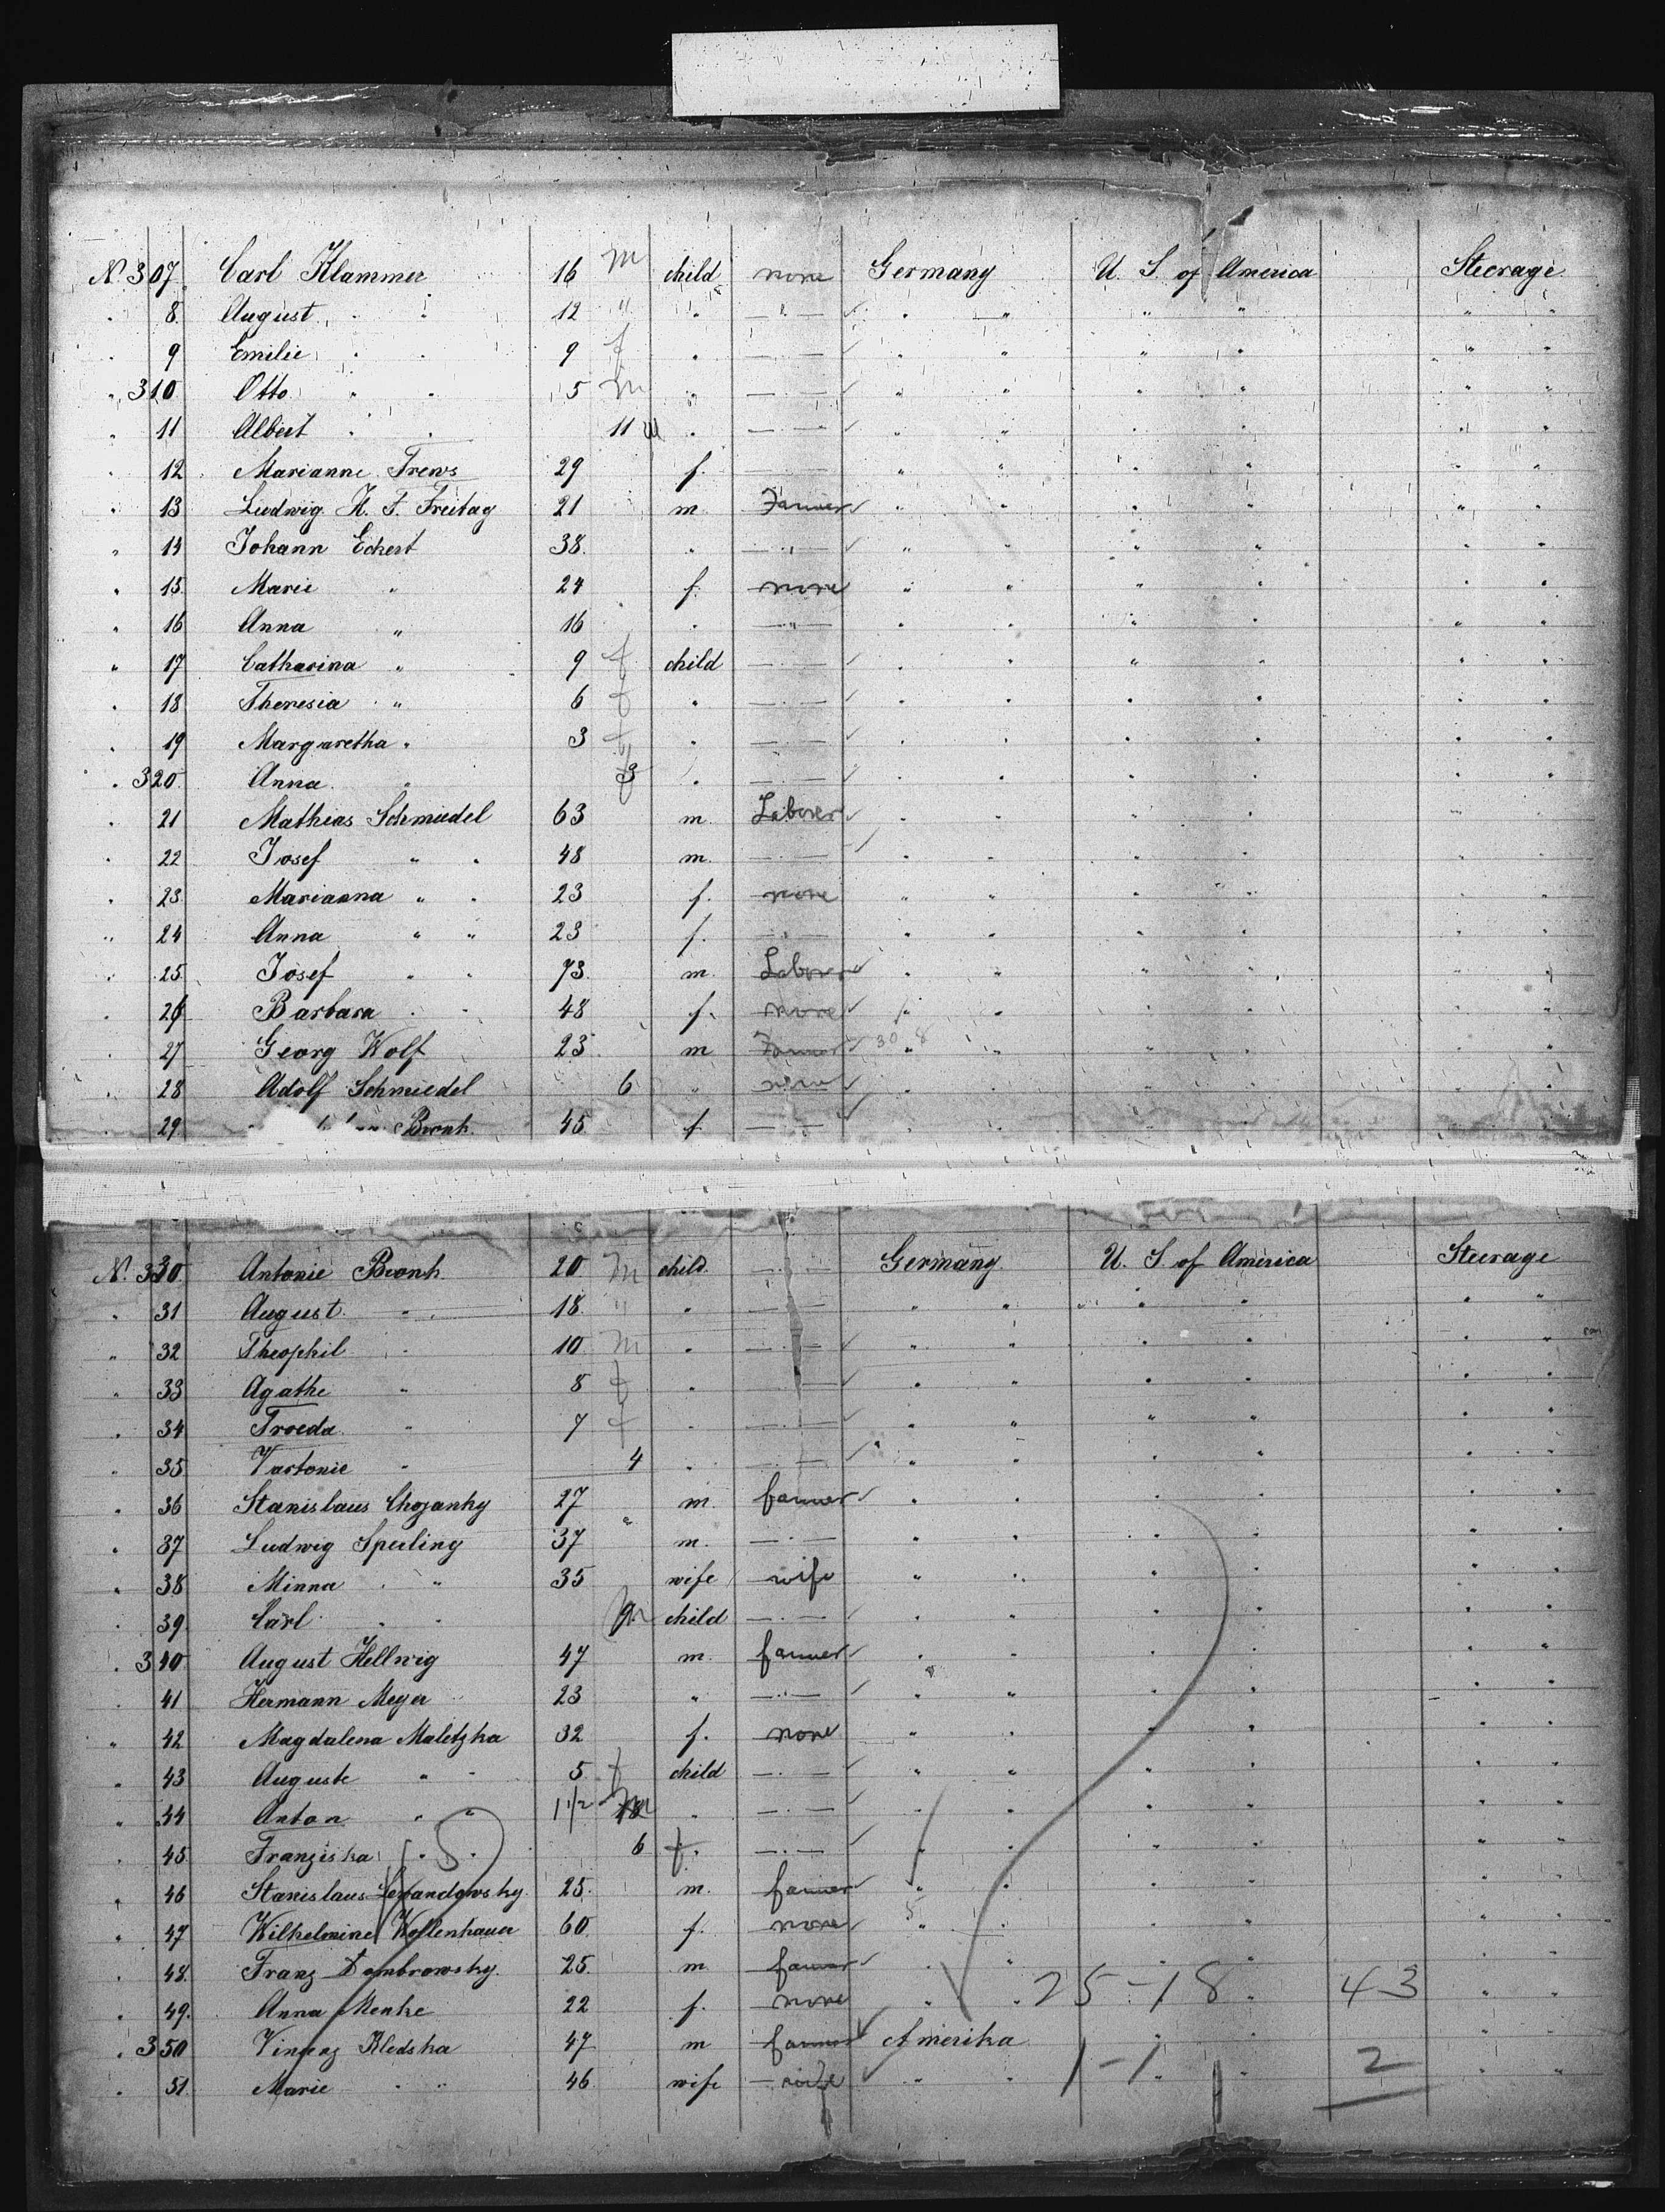 N. 307. Carl Klammer 16 m child none Germany U. S. of America Steerage
" 8. August " " 12 " " — " — " " " " " "
" 9 Emilie " " 9 f " — " — " " " " " "
" 310 Otto " " 5 m " — " — " " " " " "
" 11 Albert " " 11 m " — " — " " " " " "
" 12. Marianne Trews 29 f. — " — " " " " " "
" 13 Ludwig K. F. Freitag 21 m. Farmer " " " " " "
" 14 Johann Eckert 38. " — " — " " " " " "
" 15. Marie " 24 f. none " " " " " "
" 16 Anna " 16 " — " — " " " " " "
" 17 Catharina " 9 f child — " — " " " " " "
" 18 Theresia " 6 f " — " — " " " " " "
" 19 Margaretha " 3 f " — " — " " " " " "
" 320 Anna " 3 f " — " — " " " " " "
" 21 Mathias Schmiedel 63 m. Laborer " " " " " "
" 22 Josef " " 48 m. — " — " " " " " "
" 23. Marianna " " 23 f. none " " " " " "
" 24 Anna " " 23 f. — " — " " " " " "
" 25. Josef " " 73. m. Laborer " " " " " "
" 26 Barbara " " 48 f. none " " " " " "
" 27 Georg Wolf 23. m Farmer 30 8 " " " " " "
" 28 Adolf Schmiedel 6 " none " " " " " "
" 29. 45. f. — " — " " " " " "
N. 330. Antonie 20 m child. — " — Germany U. S. of America Steerage
" 31 August " 18 " " — " — " " " " " "
" 32 Theophil " 10 m " — " — " " " " " "
" 33 Agathe " 8 f " — " — " " " " " "
" 34 " 7 f " — " — " " " " " "
" 35 " 4 " — " — " " " " " "
" 36 Stanislaus 27 m. farmer " " " " " "
" 37 Ludwig Sperling 37 m. — " — " " " " " "
" 38 Minna " 35 wife wife " " " " " "
" 39. Carl " " 9 m child — " — " " " " " "
" 340 August Hellwig 47 m. farmer " " " " " "
" 41 Hermann Meyer 23 " — " — " " " " " "
" 42 Magdalena Maletzka 32 f. none " " " " " "
" 43 Auguste " " 5 f child — " — " " " " " "
" 44 Anton " " 1 1/2 m " — " — " " " " " "
" 45. Franziska " " 6 f " — " — " " " " " "
" 46 Stanislaus Lewandowsky. 25. m. farmer " " " " " "
" 47 Wilhelmine 60 f. none " " " " " "
" 48. Franz Dombrowsky. 25. m farmer " " " " " "
" 49. Anna Menke 22 f. none " " 25-18 " 43 " "
" 350 47 m farmer Amerika " " " "
" 51. Marie " " 46 wife wife " " 1-1 " " 2 " "